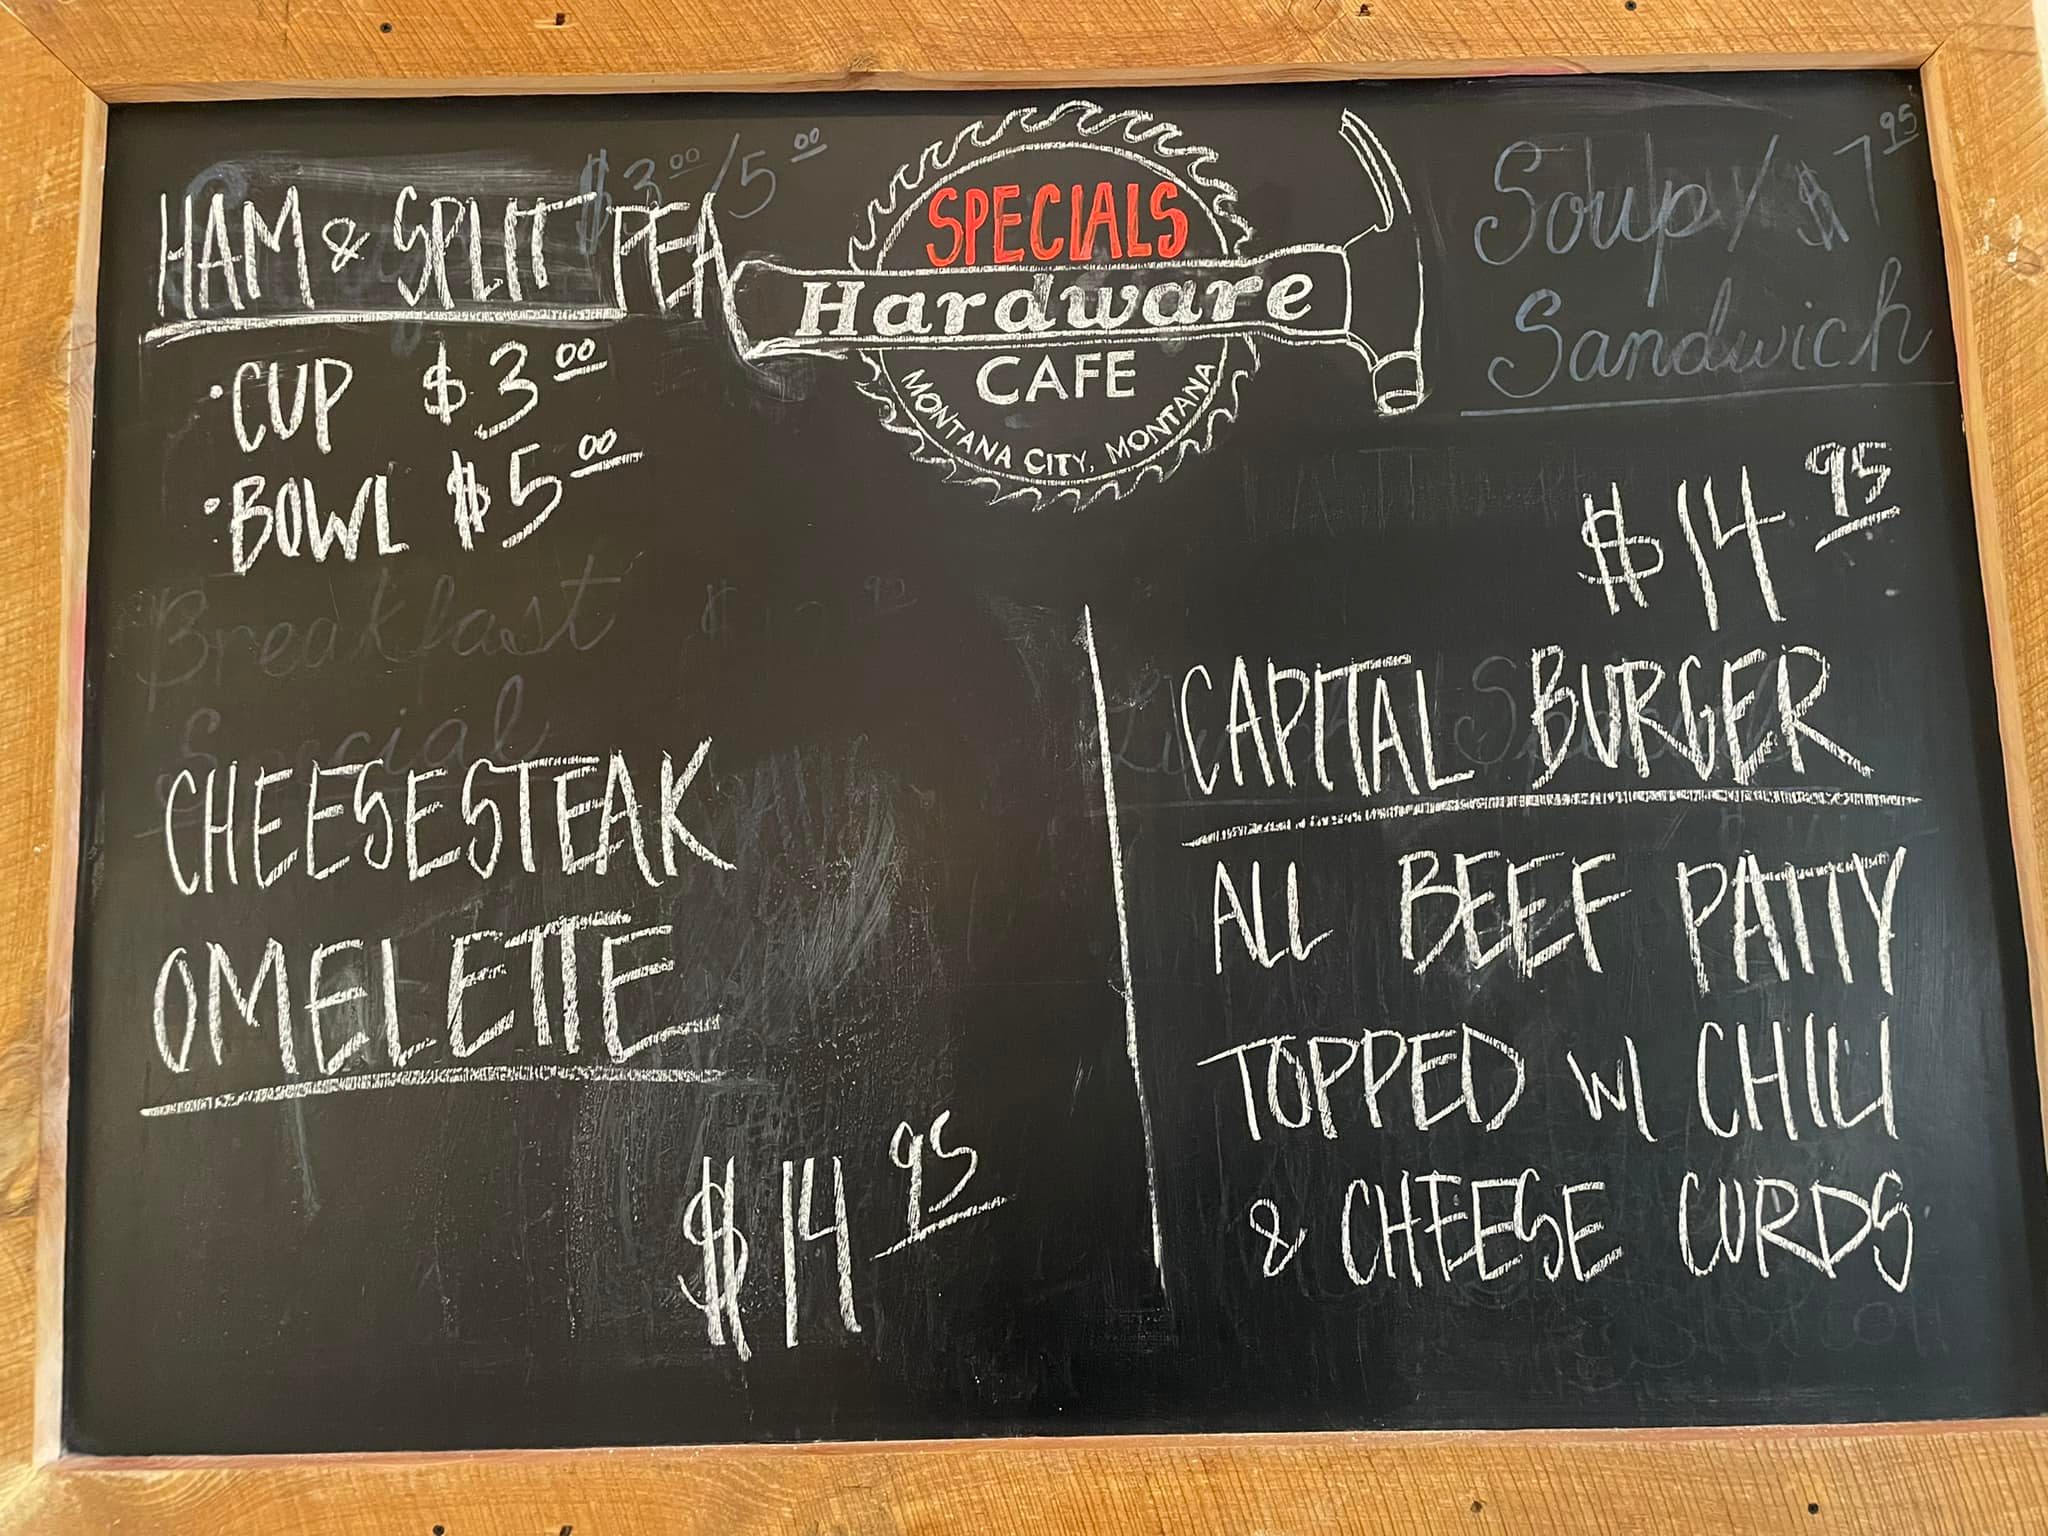 $3.00/5.00
HAM & SPLIT PEA
• CUP $3.00
• BOWL $5.00
Breakfast
Special
CHEESESTEAK
OMELETTE
$14.95
SPECIALS
Hardware
CAFE
MONTANA CITY, MONTANA
Soup/ $7.95
Sandwich
$14.95
CAPITAL BURGER
ALL BEEF PATTY
TOPPED W/ CHILI
& CHEESE CURDS